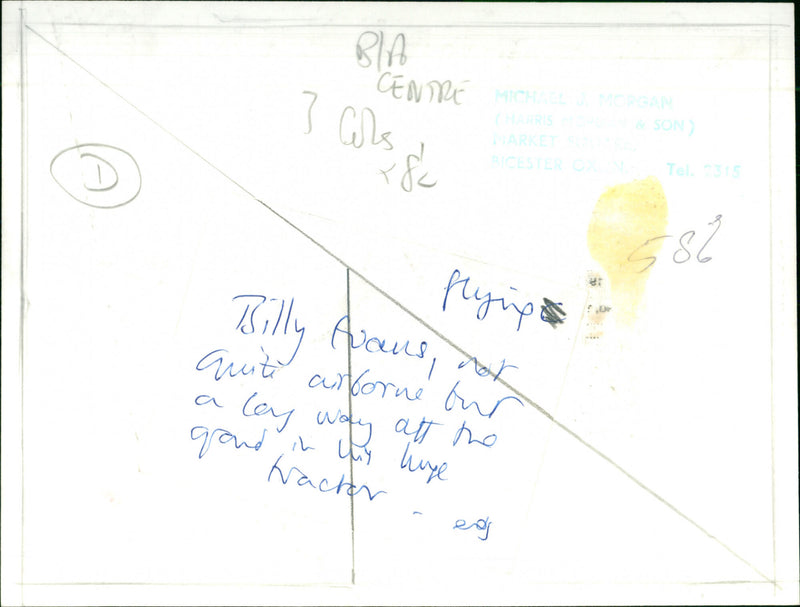 B/A
CENTRE
3 Cols
MICHAEL J. MORGAN
(HARRIS MORGAN & SON)
MARKET
BICESTER OXON. Tel. 2315
D
586
flying
Billy Evans, not
quite airborne but
a long way off the
ground in his huge
tractor